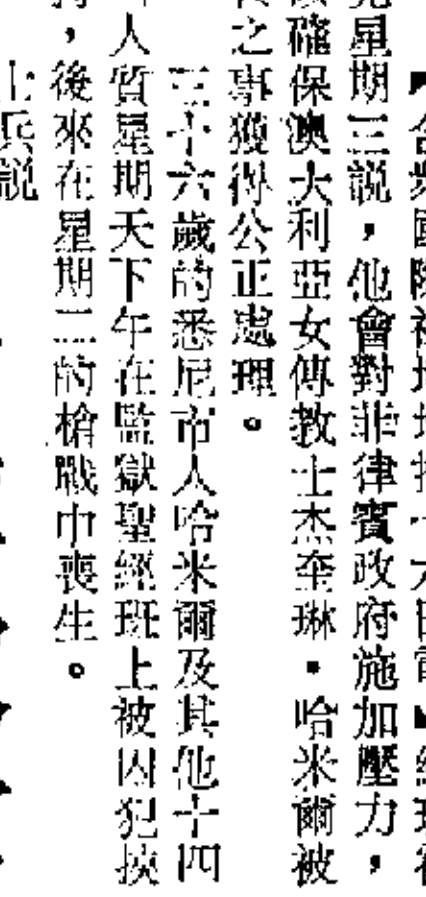 合眾國際社
星期三說，他會對菲律賓政府施加壓力，
確保澳大利亞女傳教士杰奎琳·哈米爾被
之事獲得公正處理。
三十六歲的悉尼市人哈米爾及其他十四
人質星期天下午在監獄聖經班上被囚犯挾
，後來在星期二的槍戰中喪生。
士兵說